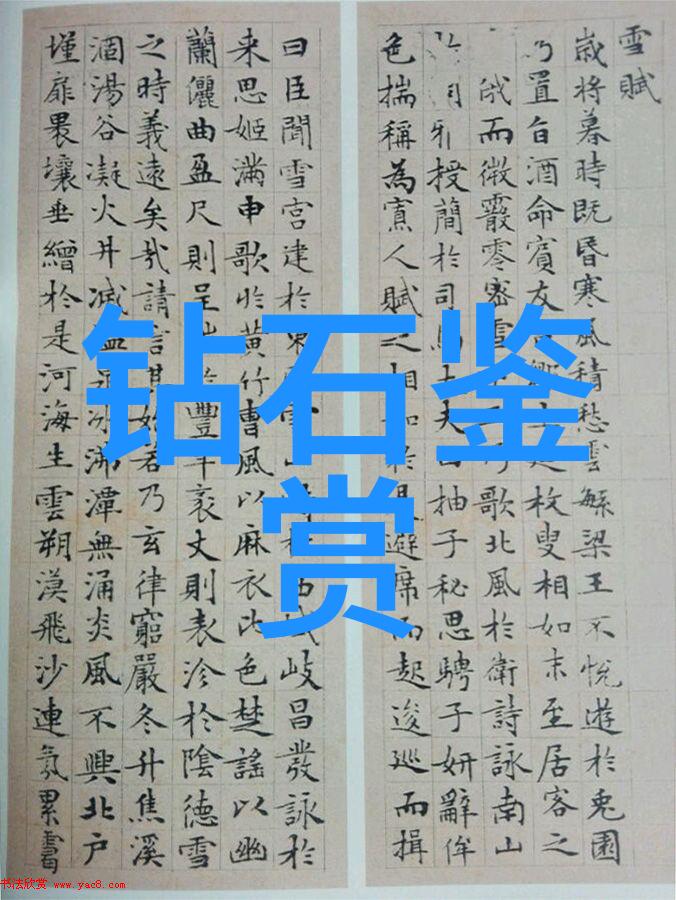 雪賦
歲將暮時既昏寒風積愁雲繁梁王不悅遊於兔園
乃置旨酒命賓友 枚叟相如末至居客之
俄而微霰零密雪 歌北風於衛詩詠南山
授簡於司馬大夫曰抽子秘思騁子妍辭侔
色揣稱為寡人賦之相如於是避席而起逡巡而揖
曰臣聞雪宮建於東 雪山 西域岐昌發詠於
来思姬滿申歌於黃竹曹風以麻衣比色楚謠以幽
蘭儷曲盈尺則呈 豐年袤丈則表沴於陰德雪
之時義遠矣哉請言其始若乃玄律窮嚴冬升焦溪
涸湯谷凝火井滅溫泉冰沸潭無涌炎風不興北户
墐扉 壤垂繒於是河海生雲朔漠飛沙連氛累靄
钻石鉴
赏
书法欣赏 www.yac8.com